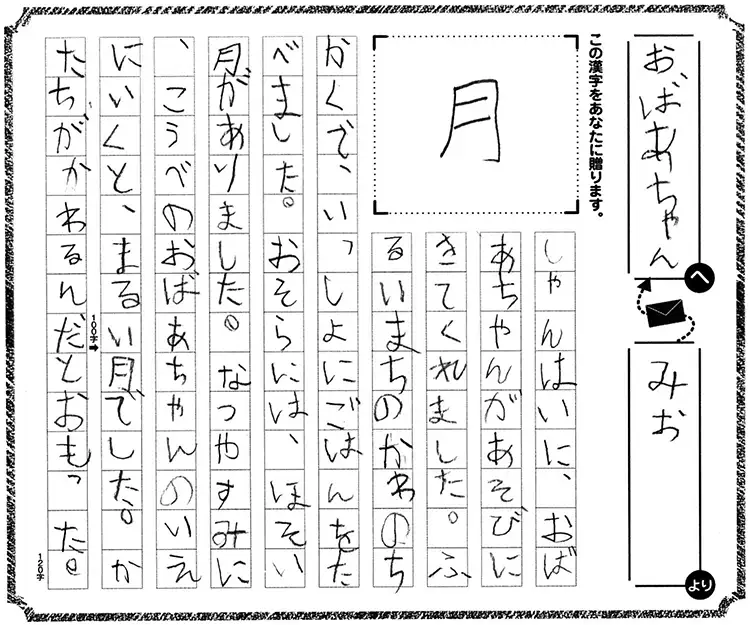 おばあちゃん へ
みお より
この漢字をあなたに贈ります。
月
しゃんはいに、おば
あちゃんがあそびに
きてくれました。ふ
るいまちのかわのち
かくで、いっしょにごはんをた
べました。おそらには、ほそい
月がありました。なつやすみに
、こうべのおばあちゃんのいえ
にいくと、まるい月でした。か
100字➡
たちがかわるんだとおもった。
120字